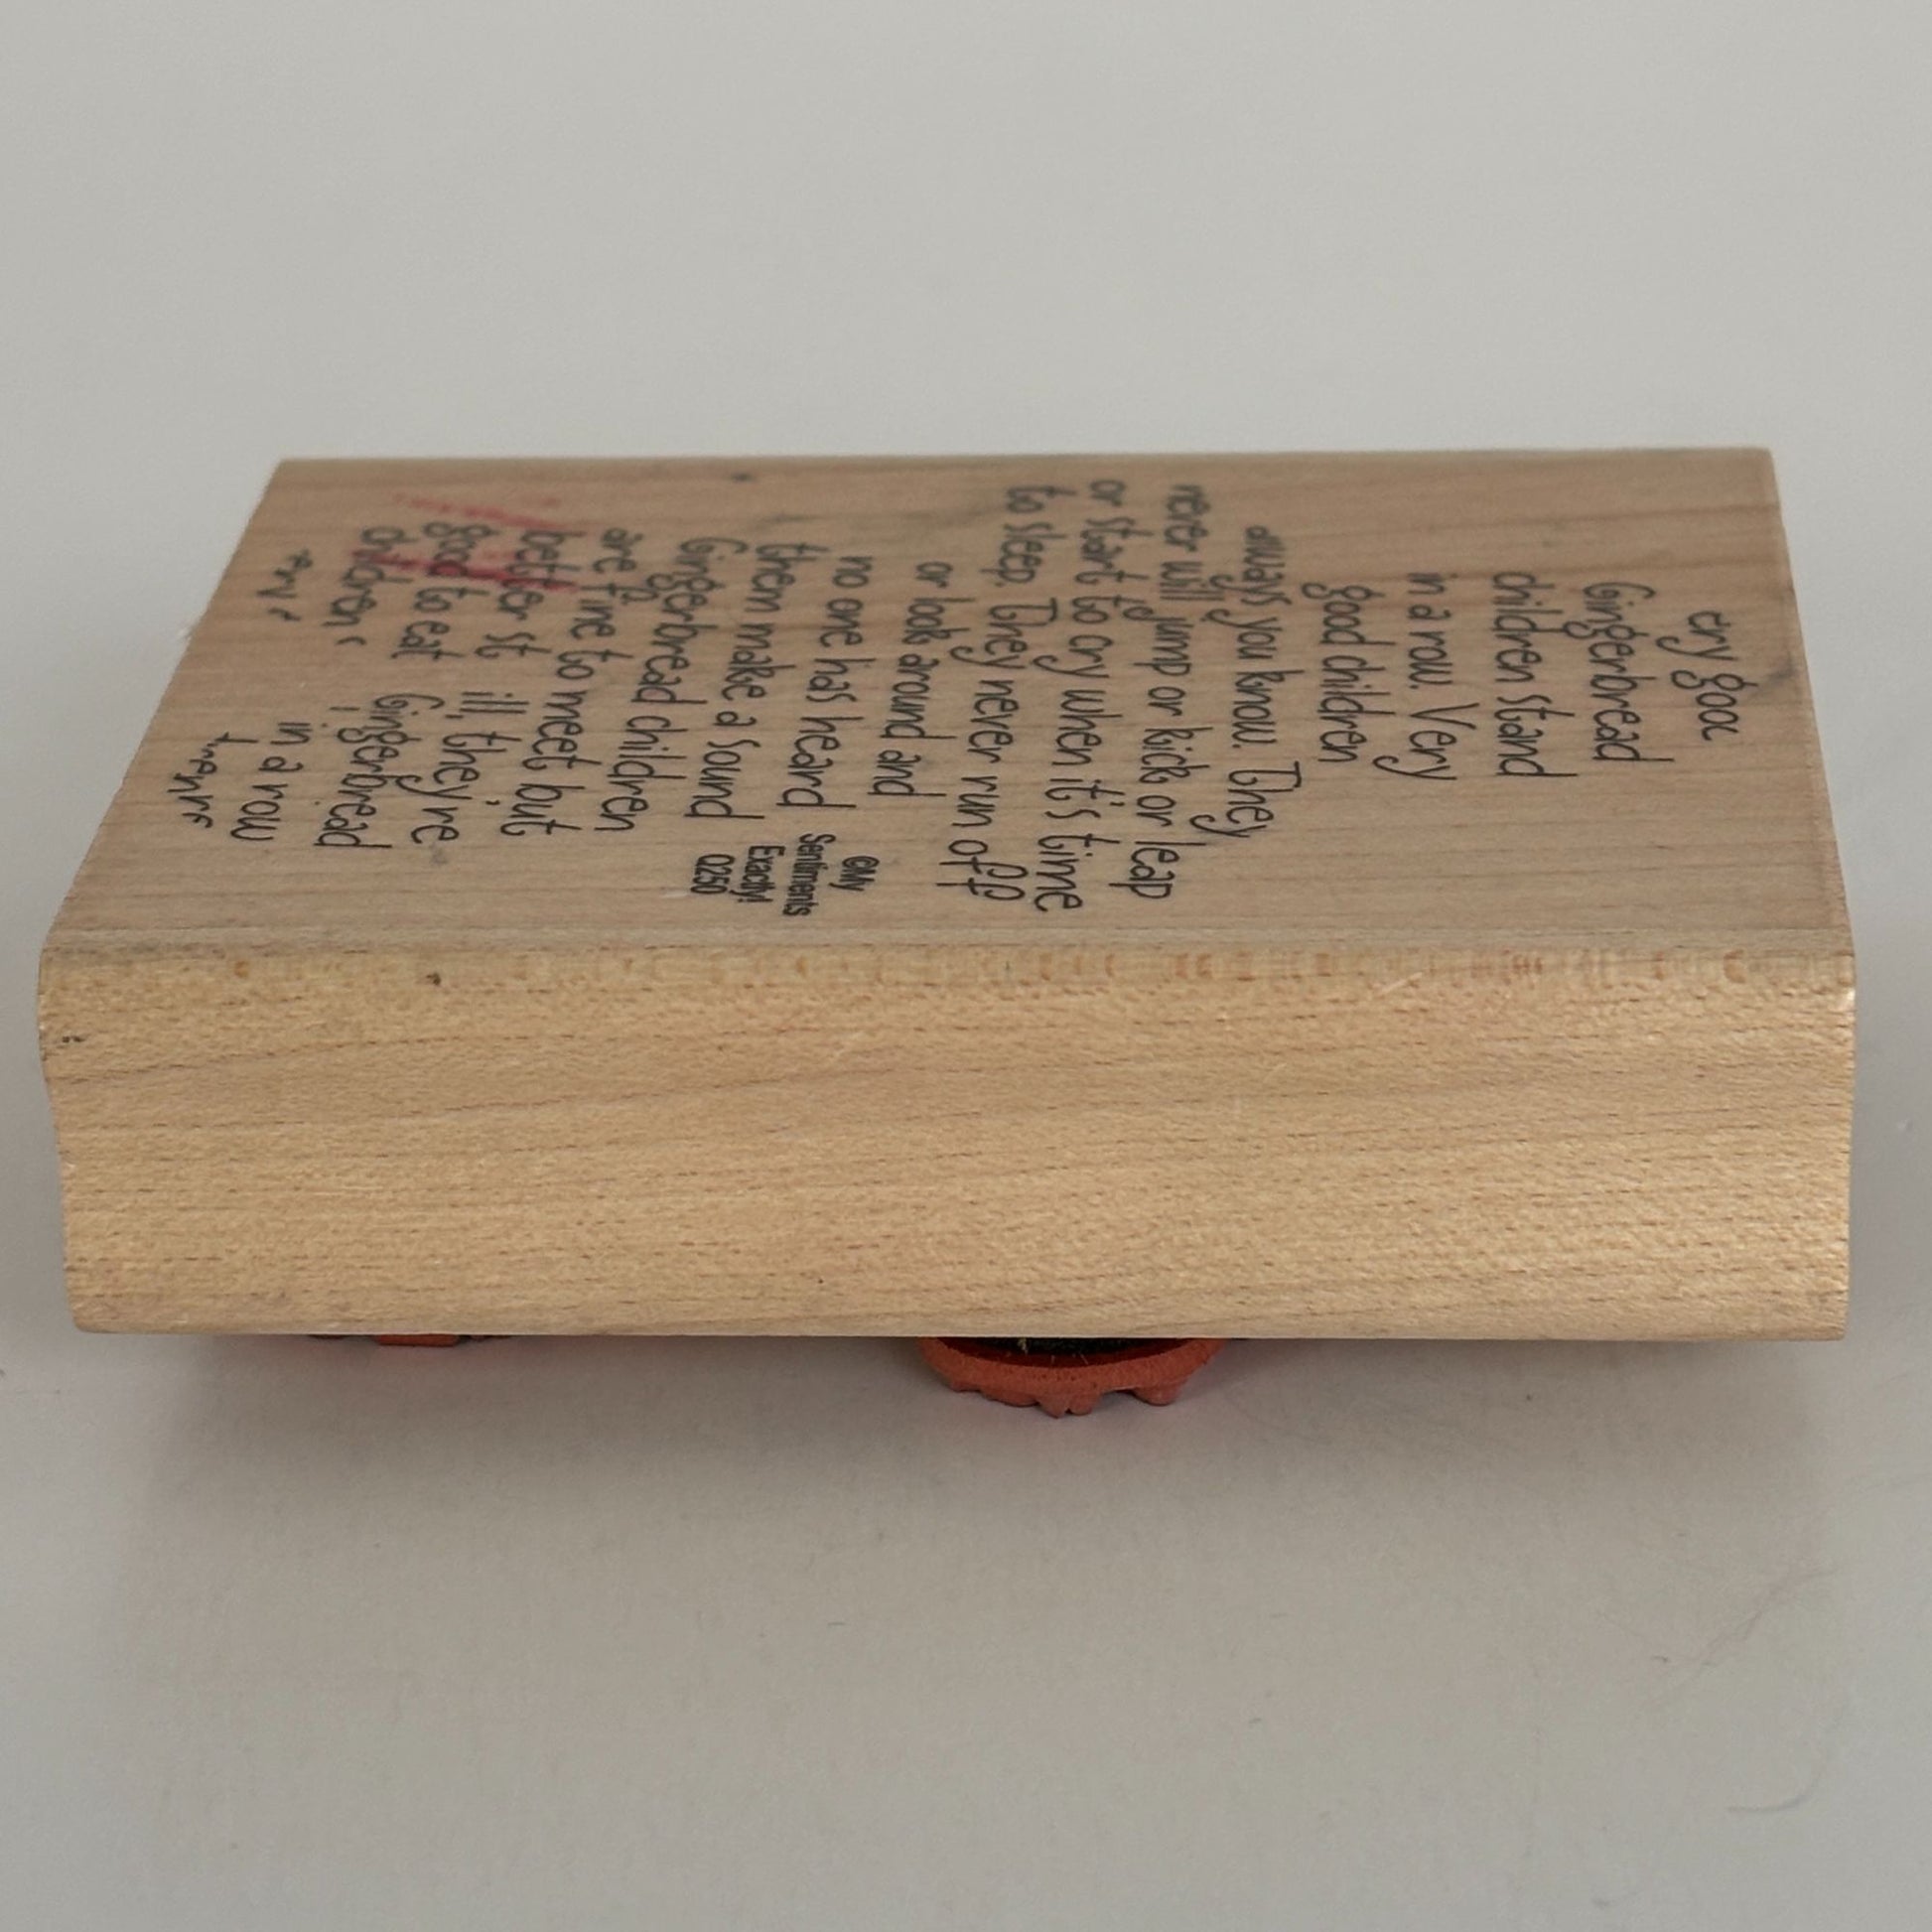 Gingerbread
children stand
in a row. Very
good children
always you know. They
never will jump or kick or leap
or start to cry when it's time
to sleep. They never run off
or look around and
no one has heard
them make a sound
Gingerbread children
are fine to meet but
better st ill, they're
good to eat Gingerbread
children, in a row
©My
Sentiments
Exactly!
Q250